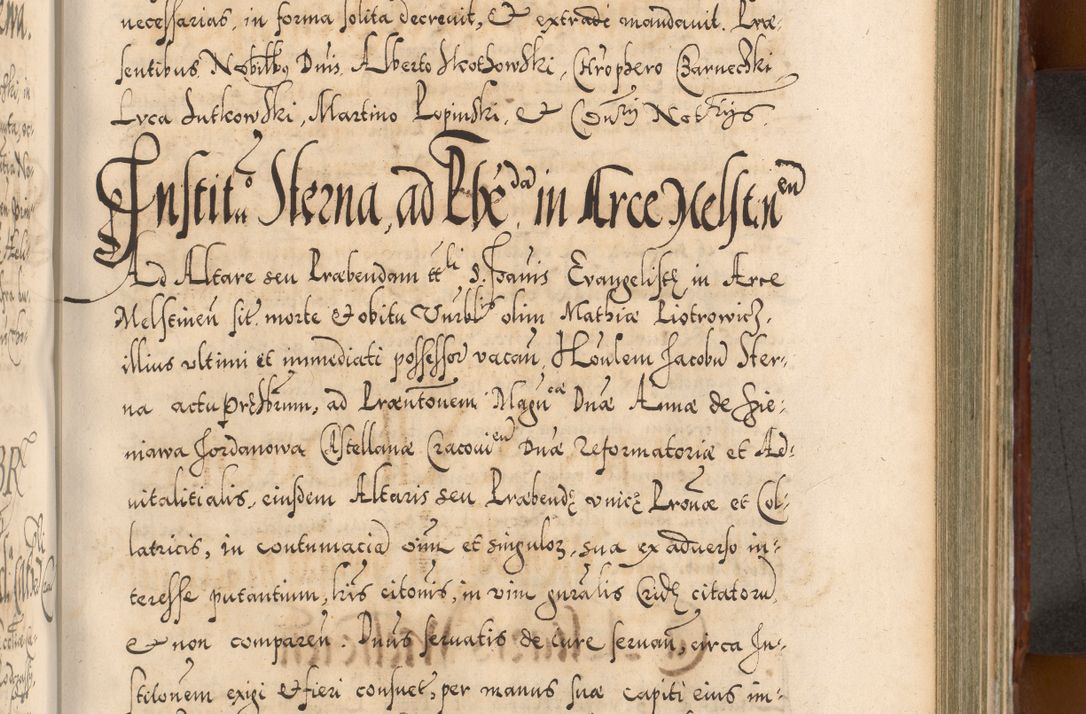 necessarias, in forma solita decreuit, & extradi mandauit. Præ-
sentibus Nobilibꝯ Dnis Alberto Skothowski, Chrophero Czarnecʒki
Lvca Lutkowski, Martino Lopinski, & Consrij Notrijs.
Institu° Sterna, ad Pbēda in Arce Melstinen
Ad Altare seu Præbendam ttli S. Joanis Evangelistę in Arce
Melstinen sit. morte & obitu Vnrblis olim Mathiæ Piotrowicz,
illius vltimi et immediati possessor vacan, Honlem Jacobū Ster-
na actu prēsbrum, ad Præntonem Magncæ Dnæ Annæ de Sie-
niawa Jordanowa Castellanæ Cracovien Dnæ reformatoriæ et Ad-
vitalitialis, eiusdem Altaris seu Præbendę vnicę Pronæ et Col-
latricis, in contumaciā oim et singuloʒ, sua ex aduerso in-
teresse putantium, lris citonis, in vim gnralis Cridę citatorū,
& non comparen. Dnus seruatis de iure seruan, circa In-
stitonem exigi & fieri consuet, per manus suæ capiti eius im-